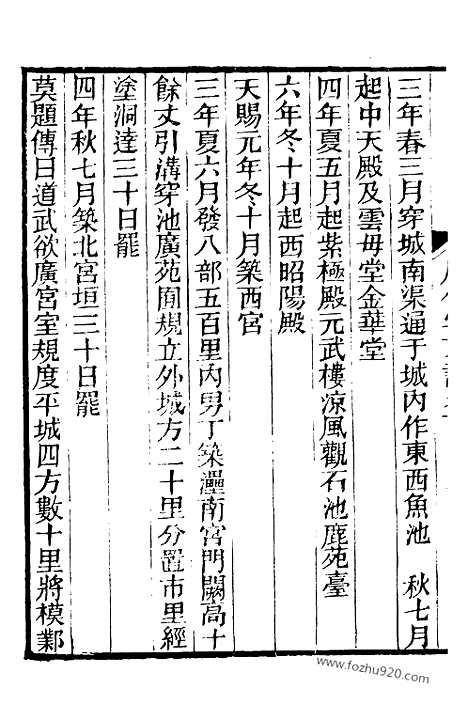 三年春三月穿城南渠通于城内作東西魚池　秋七月
起中天殿及雲毋堂金華堂
四年夏五月起紫極殿元武樓涼風觀石池鹿苑臺
六年冬十月起西昭陽殿
天賜元年冬十月築西宮
三年夏六月發八部五百里内男丁築㶟南宮門闕高十
餘丈引溝穿池廣苑囿規立外城方二十里分置市里經
塗洞達三十日罷
四年秋七月築北宮垣三十日罷
莫題傳曰道武欲廣宮室規度平城四方數十里將模鄴
www.fozhu920.com